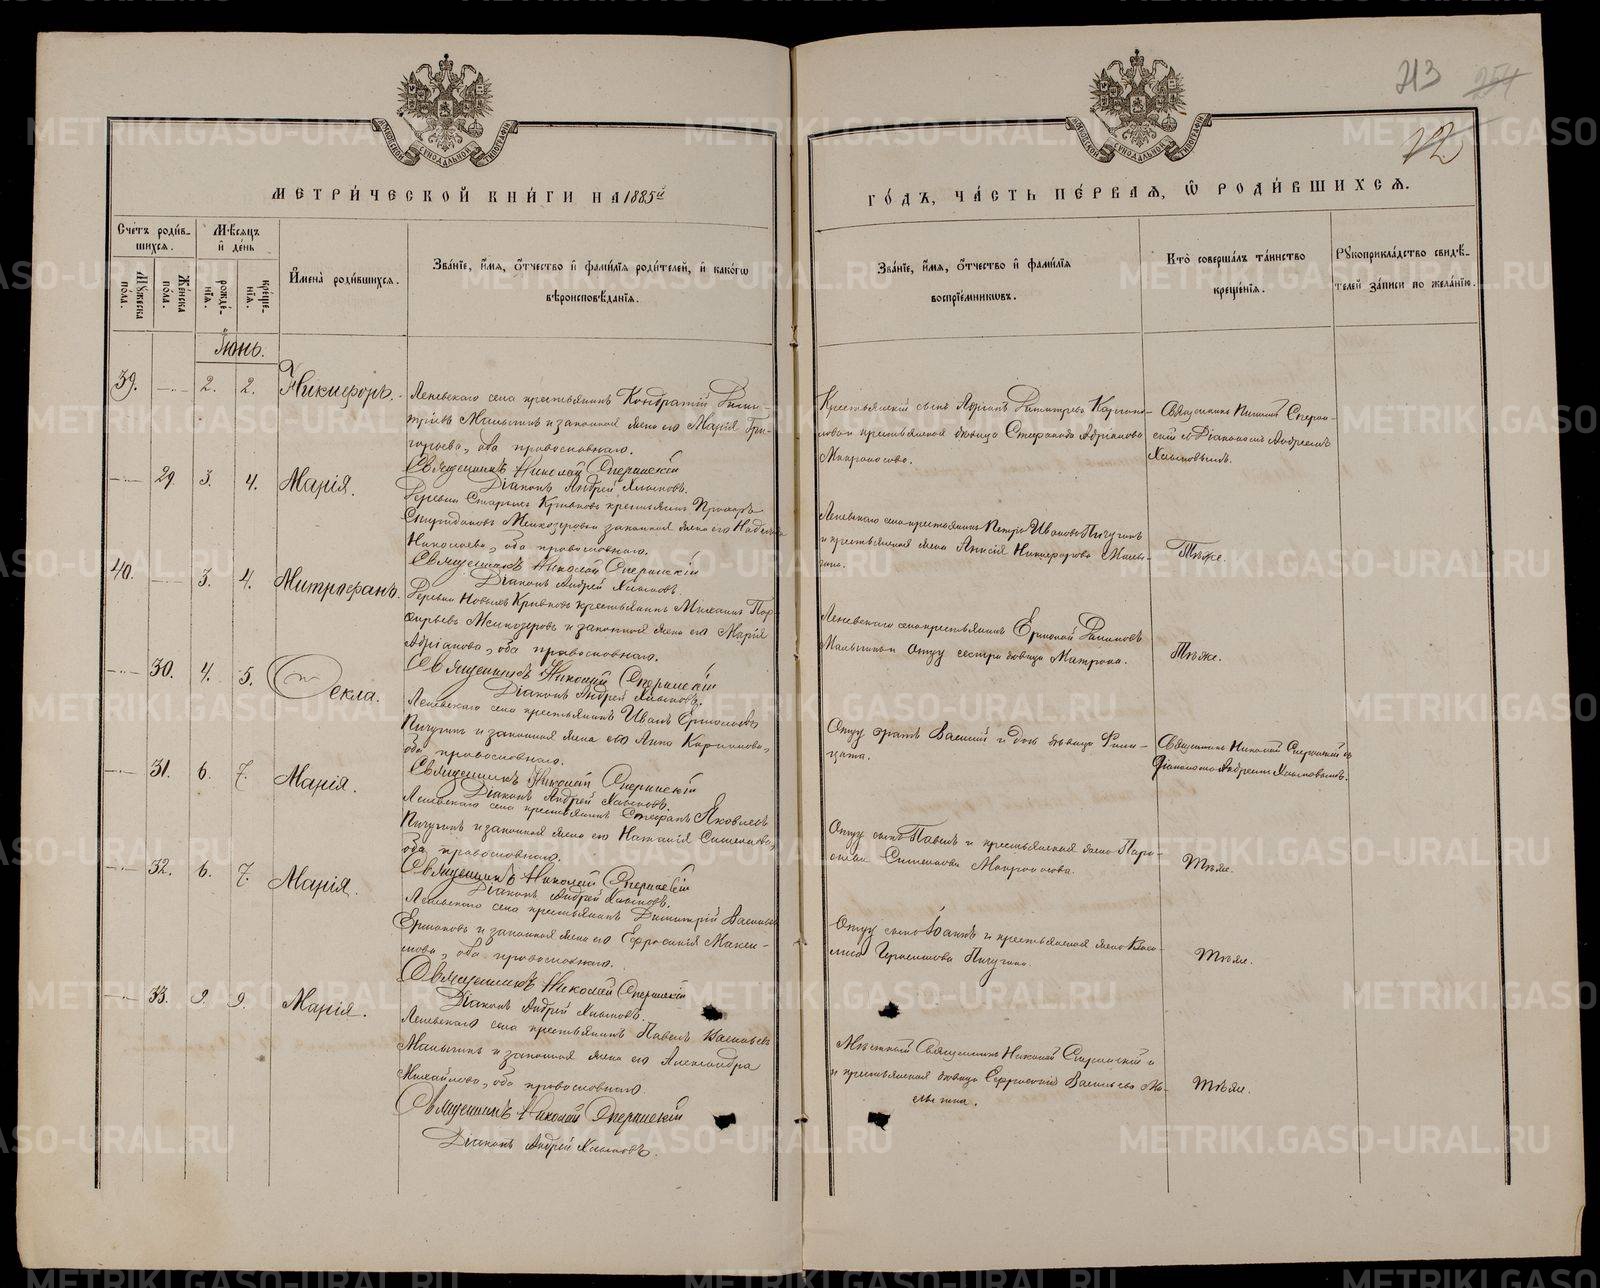 213 254
12
МЕТРИ́ЧЕСКОЙ КНИ́ГИ НА 1885й
ГО́ДЪ, ЧА́СТЬ ПЕ́РВАЯ, Ѡ҆ РОДИ́ВШИХСЯ.
Сче́тъ роди́в-
шихся.
Мѣ́сяцъ
и҆ де́нь
Мꙋ́жеска
по́ла.
Же́нска
по́ла.
рожде́-
нїя.
креще́-
нїя.
И҆мена̀ роди́вшихся.
Зва́нїе, и҆́мя, ѻ҆́тчество и҆ фами́лїя роди́телей, и҆ како́гѡ
вѣроисповѣ́данїя.
Зва́нїе, и҆́мя, ѻ҆́тчество и҆ фами́лїя
воспрїе́мниковъ.
Кто̀ соверша́лъ та́инство
креще́нїя.
Рꙋкоприкла́дство свидѣ́-
телей за́писи по жела́нїю.
Іюнь.
39. 2. 2. Никифоръ.
Леневскаго села крестьянинъ Кондратій Дими-
тріевъ Малыгинъ и законная жена его Марія Гри-
горьева, оба православнаго.
Священникъ Николай Сперанскій
Діаконъ Андрей Хлыновъ.
Крестьянскій сынъ Адріанъ Димитріевъ
и крестьянская дѣвица Стефанида Адріанова
Священникъ Николай Сперан-
скій съ Діакономъ Андреемъ
Хлыновымъ.
29 3. 4. Марія.
Деревни Старыхъ Кривковъ крестьянинъ Прохоръ
законная жена его Надежда
Николаева, оба православнаго.
Священникъ Николай Сперанскій
Діаконъ Андрей Хлыновъ.
Леневскаго села крестьянинъ Петръ Ивановъ Пичугинъ
и крестьянская жена Анисія Никифорова Малы-
гина.
Тѣже.
40. 3. 4. Митрофанъ.
Деревни Новыхъ Кривковъ крестьянинъ Михаилъ Пор-
фирьевъ и законная жена его Марія
Адріанова, оба православнаго.
Священникъ Николай Сперанскій
Діаконъ Андрей Хлыновъ.
Леневскаго села крестьянинъ Ермолай
Малыгинъ и отцу сестра дѣвица Матрона.
Тѣже.
30. 4. 5. Ѳекла.
Леневскаго села крестьянинъ Иванъ Ермолаевъ
Пичугинъ и законная жена его Анна
оба православнаго.
Священникъ Николай Сперанскій
Діаконъ Андрей Хлыновъ.
Отцу братъ Василій и дочь дѣвица Фили-
цата.
Священникъ Николай Сперанскій съ
Діакономъ Андреемъ Хлыновымъ.
31. 6. 7. Марія.
Леневскаго села крестьянинъ Стефанъ Яковлевъ
Пичугинъ и законная жена его Наталія
оба православнаго.
Священникъ Николай Сперанскій
Діаконъ Андрей Хлыновъ.
Отцу сынъ Павелъ и крестьянская жена Пара-
Тѣже.
32. 6. 7. Марія.
Леневскаго села крестьянинъ Димитрій Васильевъ
Ермаковъ и законная жена его Евфросинія Макси-
мова, оба православнаго.
Священникъ Николай Сперанскій
Діаконъ Андрей Хлыновъ.
Отцу сынъ Іоаннъ и крестьянская жена
Герасимова Пичугина.
Тѣже.
33. 9. 9. Марія.
Леневскаго села крестьянинъ Павелъ Васильевъ
Малыгинъ и законная жена его Александра
Михайлова, оба православнаго.
Священникъ Николай Сперанскій
Діаконъ Андрей Хлыновъ.
Мѣстный Священникъ Николай Сперанскій
и крестьянская дѣвица Евфросинія Васильева Ма-
лыгина.
Тѣже.
METRIKI.GASO-URAL.RU